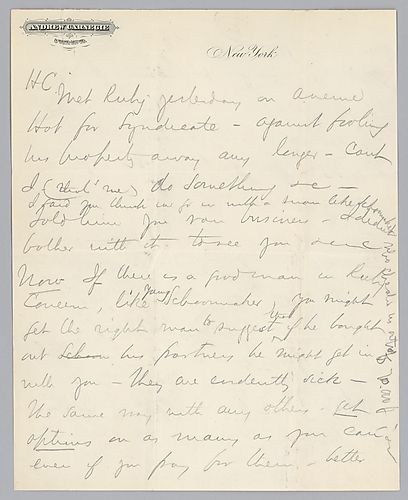 ANDREW CARNEGIE
New York
H C
Met Ruby yesterday on Avenue
Hot for Syndicate — against fooling
his property away any longer — Cant
I (that's me) do something &c —
I said you think can go in with a man like
told him you run business — I didn't
bother with it to see you
Now If there is a good man in Ruby
Concern, like Young Schoonmaker, you might
get the right man to suggest that if he bought
out his partners he might get in
with you — they are evidently sick —
the same way with any others — get
options on as many as you can
even if you pay for them — better